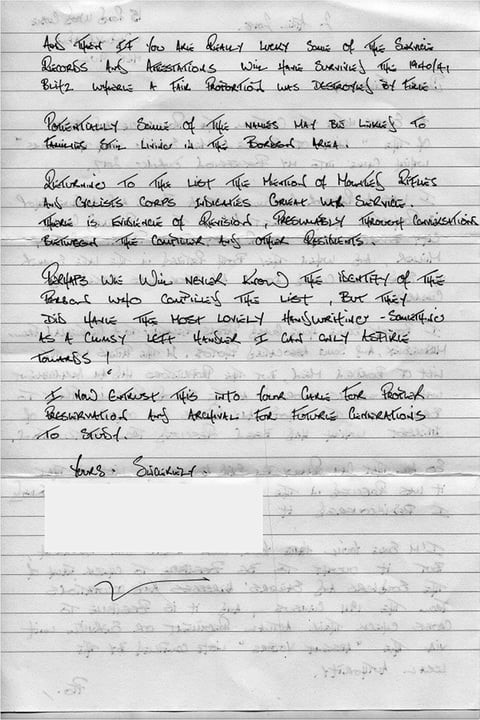 And then if you are really lucky some of the service
records and attestations will have survived the 1940/41
Blitz where a fair proportion was destroyed by fire.
Potentially some of the names may be linked to
families still living in the Borden area.
Returning to the list the mention of Mounted Rifles
and Cyclists Corps indicates Great War service.
There is evidence of revision, presumably through conversations
between the compiler and other residents.
Perhaps we will never know the identity of the
person who compiled the list, but they
did have the most lovely handwriting - something
as a clumsy left hander I can only aspire
towards!
I now entrust this into your care for proper
preservation and archival for future generations
to study.
Yours Sincerely